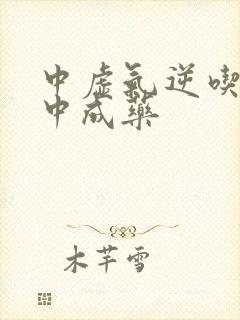 中虚氣逆喫
中成藥
木芊雪